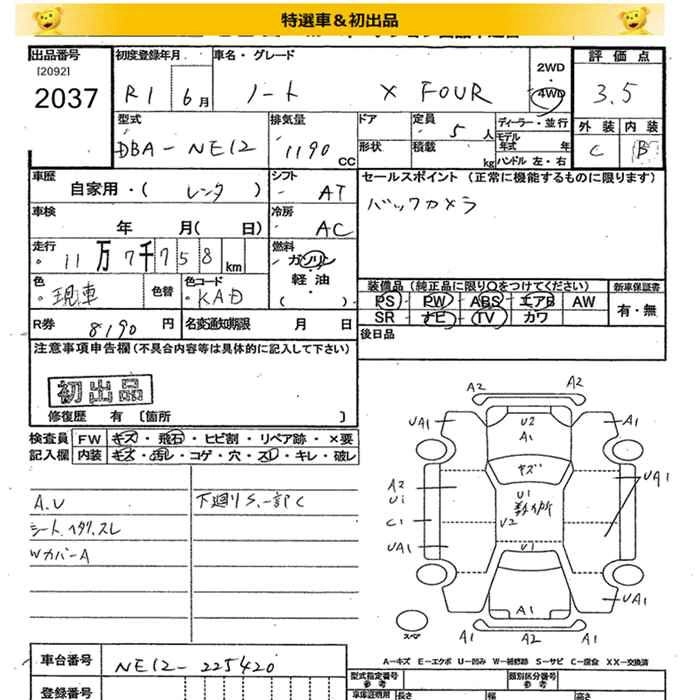 特選車＆初出品
出品番号 [2092] 2037
初度登録年月 R1 6月
車名・グレード ノート X FOUR
2WD 4WD
評価点 3.5
外装 C 内装 B
型式 DBA-NE12
排気量 1190 CC
ドア 形状
定員 5 人
積載 kg
ディーラー・並行
モデル年式 年
ハンドル 左・右
車歴 自家用・( レンタ )
シフト AT
セールスポイント (正常に機能するものに限ります)
バックカメラ
車検 年 月( 日)
冷房 AC
走行 11万7千758km
燃料 ガソリン・軽油・( )
色 現車 色替
色コード KAD
装備品 (純正品に限り○をつけてください) 新車保証書
PS PW ABS エアB AW
SR ナビ TV カワ
有・無
R券 8190 円
名変通知期限 月 日
後日品
注意事項申告欄 (不具合内容等は具体的に記入して下さい)
初出品
修復歴 有 〔箇所 〕
検査員記入欄
FW キズ・飛石・ヒビ割・リペア跡・×要
内装 キズ・汚レ・コゲ・穴・スレ・キレ・破レ
A.U
下廻りS.一部C
シートヘタリ.スレ
WカバーA
A2 A2
UA1 U2 A1 A1
キズ
A2 U1
U1
UA1
C1 U2
UA1 U1
UA1
A1
A1 A2 A1
スペア
A-キズ E-エクボ U-凹み W-補修跡 S-サビ C-腐食 XX-交換済
車台番号 NE12-225420
登録番号
型式指定番号 参考
類別区分番号 参考
車庫証明用 長さ 幅 高さ